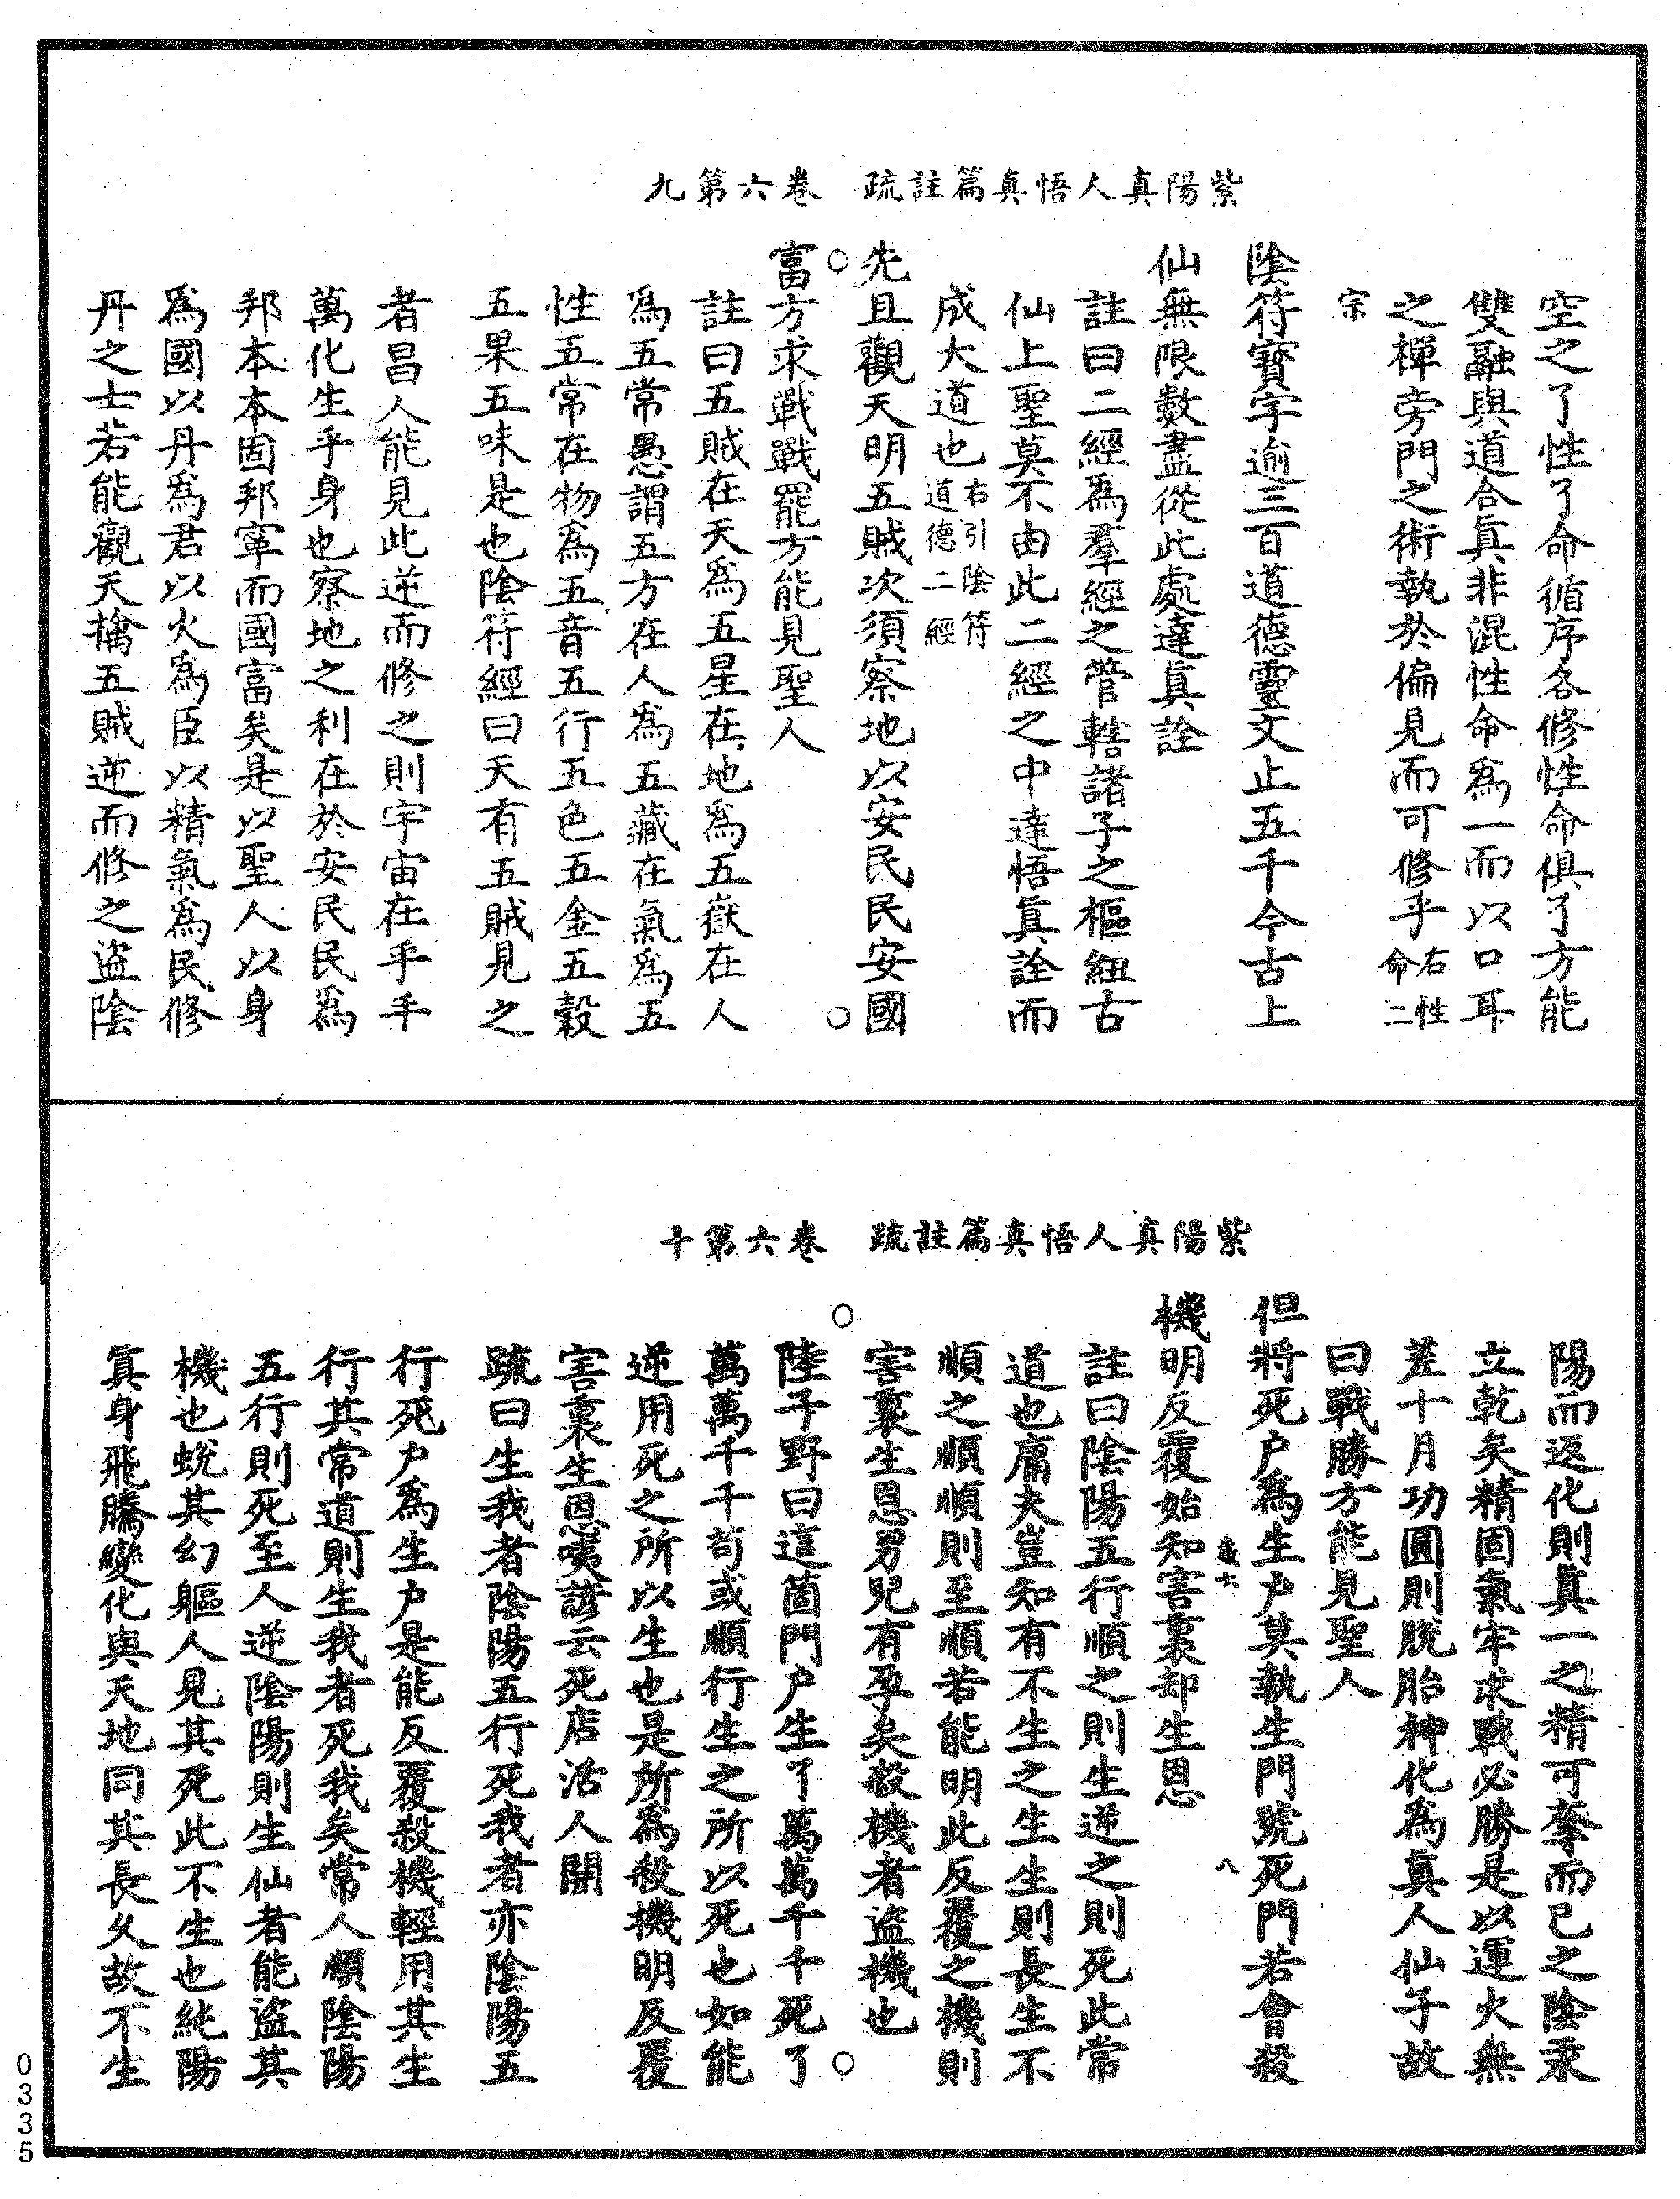 紫陽真人悟真篇註疏　卷六第九
空之了性了命循序各修性命俱了方能
雙融與道合眞非混性命爲一而以口耳
之禪旁門之術執於偏見而可修乎右性命二
宗
陰符寶字逾三百道德靈文止五千今古上
仙無限數盡從此處達眞詮
註曰二經爲羣經之管轄諸子之樞紐古
仙上聖莫不由此二經之中達悟眞詮而
成大道也右引陰符道德二經
先且觀天明五賊次須察地以安民民安國
富方求戰戰罷方能見聖人
註曰五賊在天爲五星在地爲五嶽在人
爲五常愚謂五方在人爲五藏在氣爲五
性五常在物爲五音五行五色五金五穀
五果五味是也陰符經曰天有五賊見之
者昌人能見此逆而修之則宇宙在乎手
萬化生乎身也察地之利在於安民民爲
邦本本固邦寧而國富矣是以聖人以身
爲國以丹爲君以火爲臣以精氣爲民修
丹之士若能觀天擒五賊逆而修之盜陰
紫陽真人悟真篇註疏　卷六第十
陽而返化則眞一之精可奪而已之陰汞
立乾矣精固氣牢求戰必勝是以運火無
差十月功圓則脫胎神化為眞人仙子故
曰戰勝方能見聖人
但將死户為生户莫執生門號死門若會殺
機明反覆始知害裏却生恩
註曰陰陽五行順之則生逆之則死此常
道也庸夫豈知有不生之生生則長生不
順之順順則至順若能明此反覆之機則
害裏生恩男兒有孕矣殺機者盜機也
陸子野曰這箇門户生了萬萬千千死了
萬萬千千苟或順行生之所以死也如能
逆用死之所以生也是所爲殺機明反覆
害裏生恩咦諺云死店活人開
疏曰生我者陰陽五行死我者亦陰陽五
行死户爲生户是能反覆殺機輕用其生
行其常道則生我者死我矣常人順陰陽
五行則死至人逆陰陽則生仙者能盜其
機也蛻其幻軀人見其死此不生也純陽
眞身飛騰變化與天地同其長久故不生
八
0335